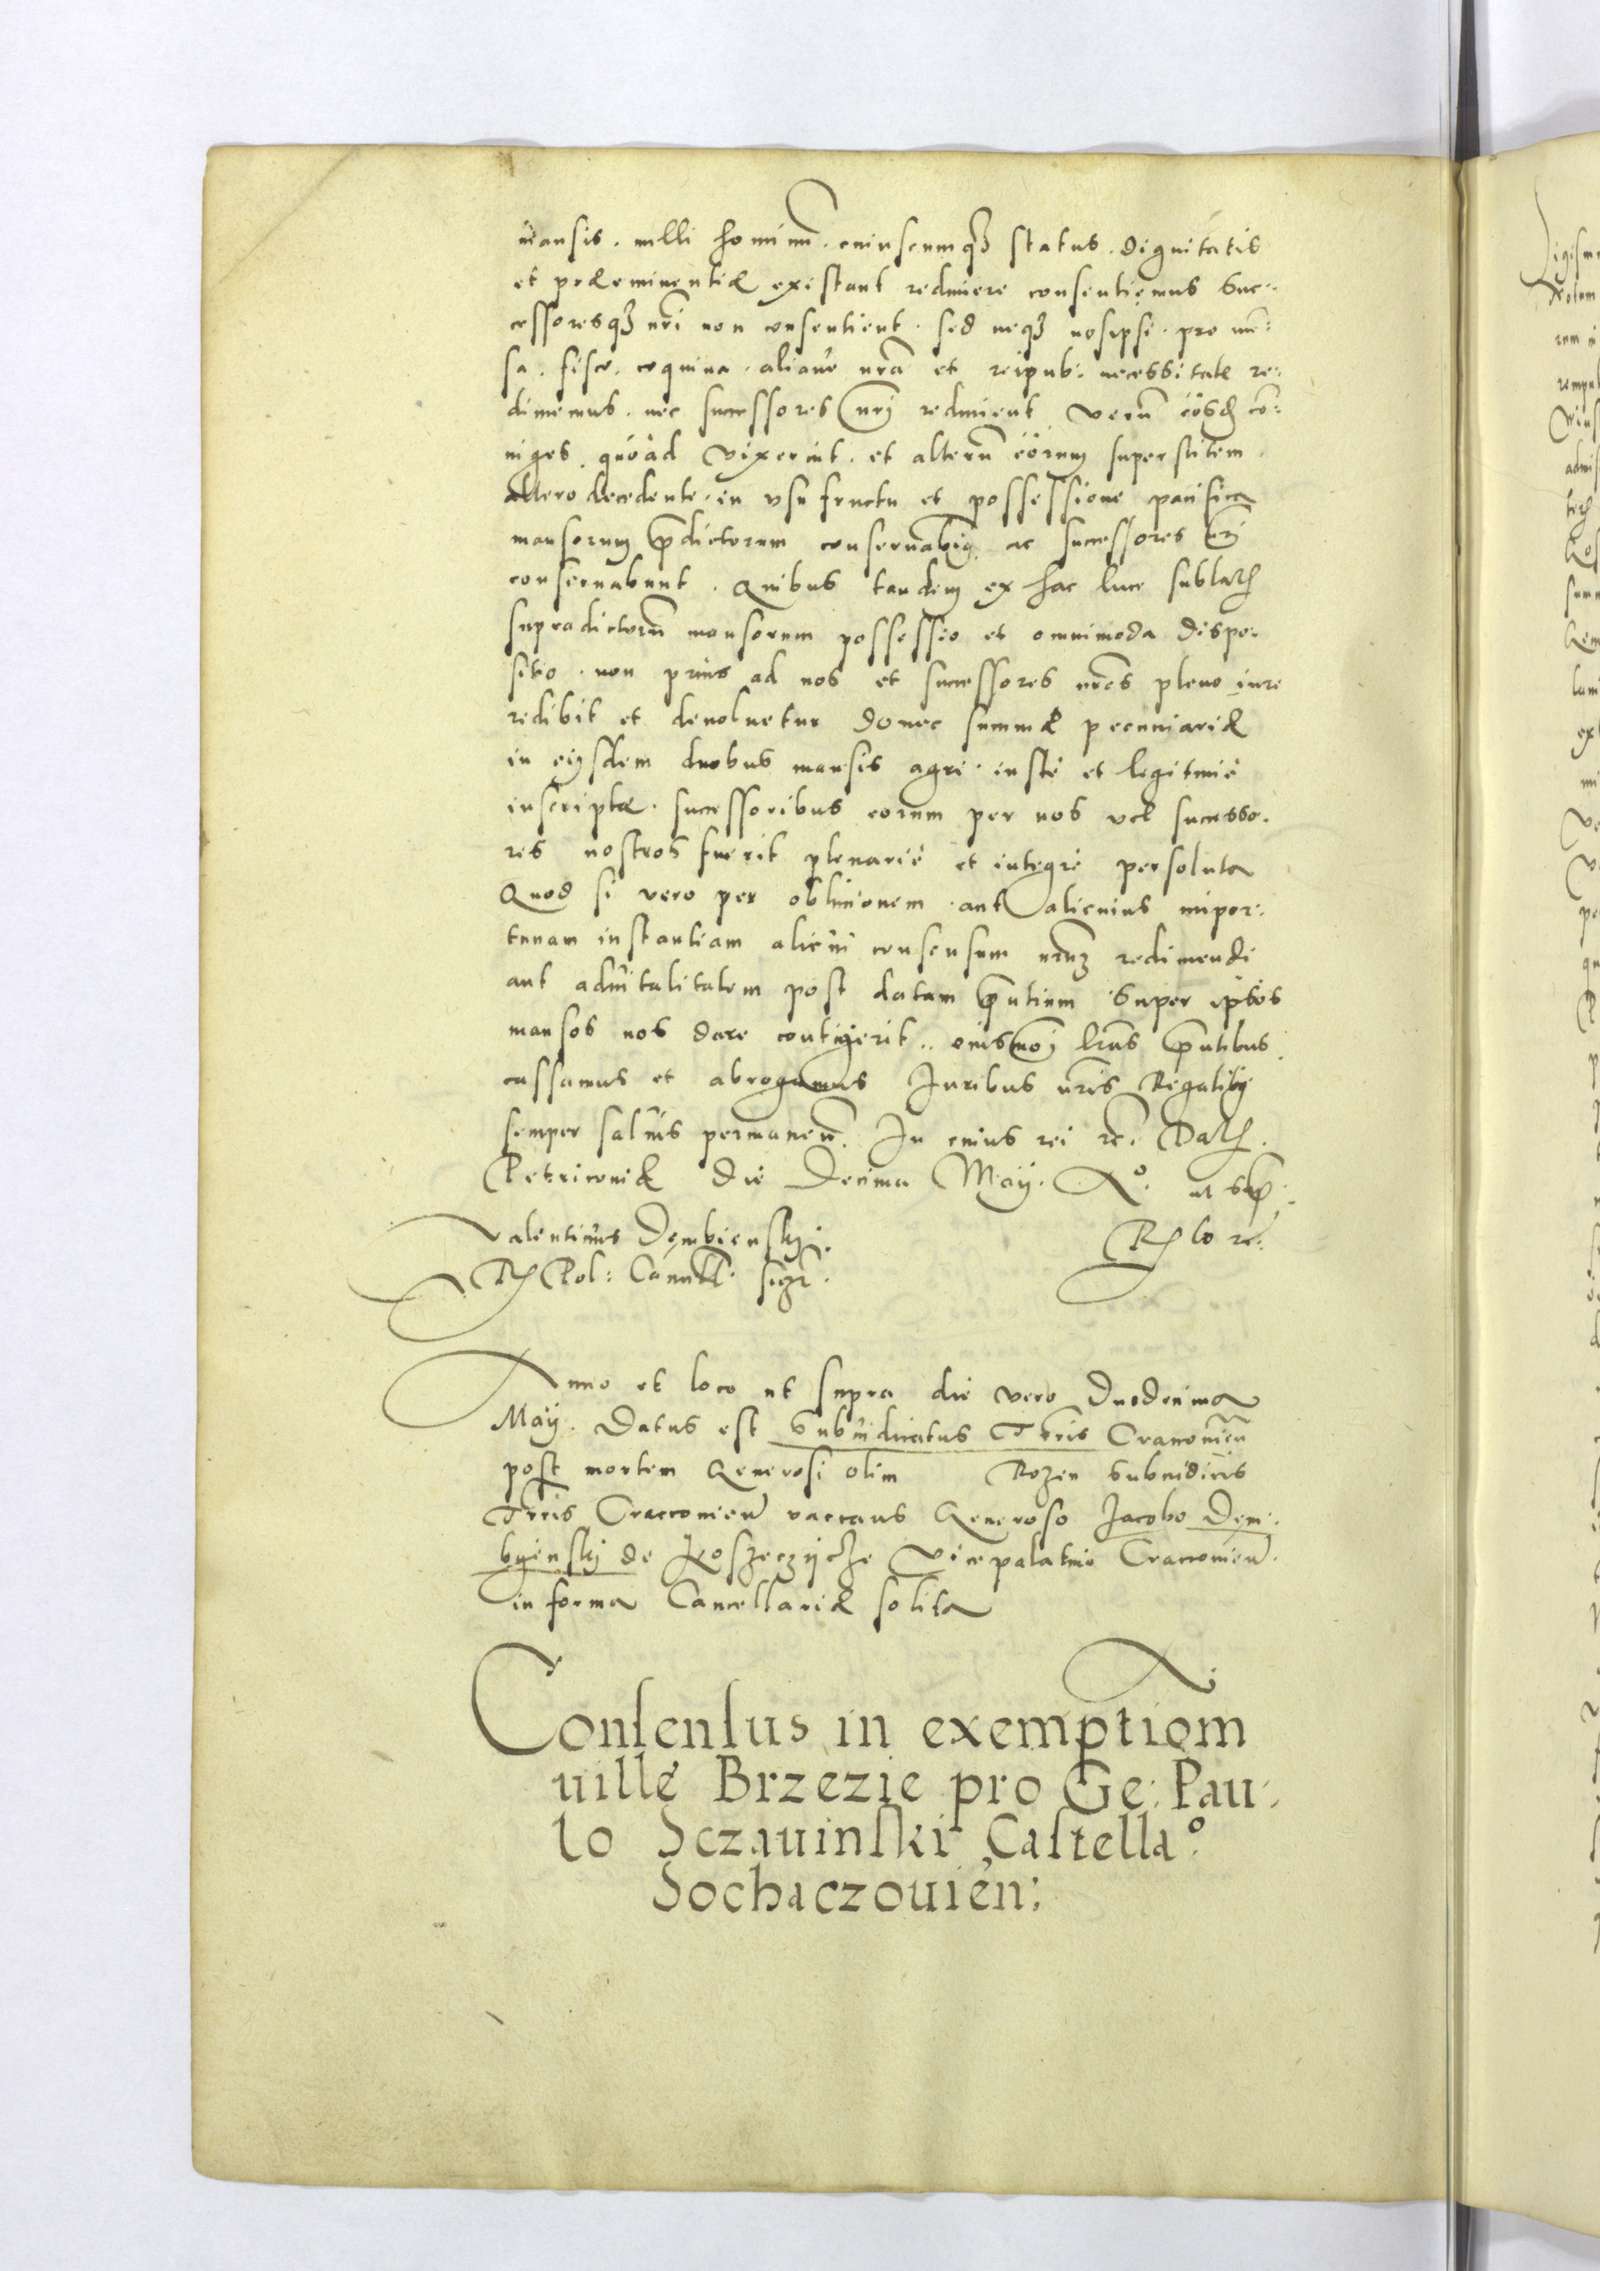 mansis. nulli hominũ. cuiuscumqȝ status. dignitatis
et præeminentiæ existant redimere consentiemus Suc-
cessoresqȝ nr̃i non consentient. sed neqȝ nosipsi. pro mẽ-
sa. fisco. coquina. aliaue nr̃a et reipub: necessitate re-
dimemus. nec successores nr̃i redimient verũ eosd. cõ-
iuges quoad vixerint. et alterũ eorum superstitem.
altero decedente. in vsufructu et possessione pacifica
mansorum p̃dictorum conseruabim9 ac successores nr̃i
conseruabunt. Quibus tandem ex hac luce sublatis
supradictorũ mansorum possessio et omnimoda dispo-
sitio. non prius ad nos et successores nr̃os pleno iure
redibit et deuoluetur donec summæ pecuniariæ
in eijsdem duobus mansis agri. iustè et legitimè
inscriptæ. successoribus eorum per nos vel successo-
res nostros fuerit plenariè et integrè persoluta
Quod si vero per obliuionem. aut alicuius impor-
tunam instantiam alicui consensum nr̃m redimendi
aut aduitalitatem post datam p̃ntium super ipsos
mansos nos dare contigerit.. eiusmoi lr̃as p̃ntibus
cassamus et abrogamus Iuribus nr̃is Regalib9
semper saluis permanen̄. In cuius rei rc. Datis.
Petricouiæ die Decima Maij. Ao. ut sup:
Valentinus Dembienskj. R lo re:
R Pol: Cancell. sszt.
Anno et loco ut supra die vero Duodecima
Maij. Datus est Subiudicatus Terris Cracouien̄
post mortem Generosi olim Rozen Subiudicis
Terris Craccouien̄ vacans Generoso Jacobo Dem-
byenskj de Koszeczijcze Vicepalatino Craccouien̄.
in forma Cancellariæ solita
Consensus in exemptiom
uille Brzezie pro Ge: Pau-
lo Sczauinski Castellao.
Sochaczouien: